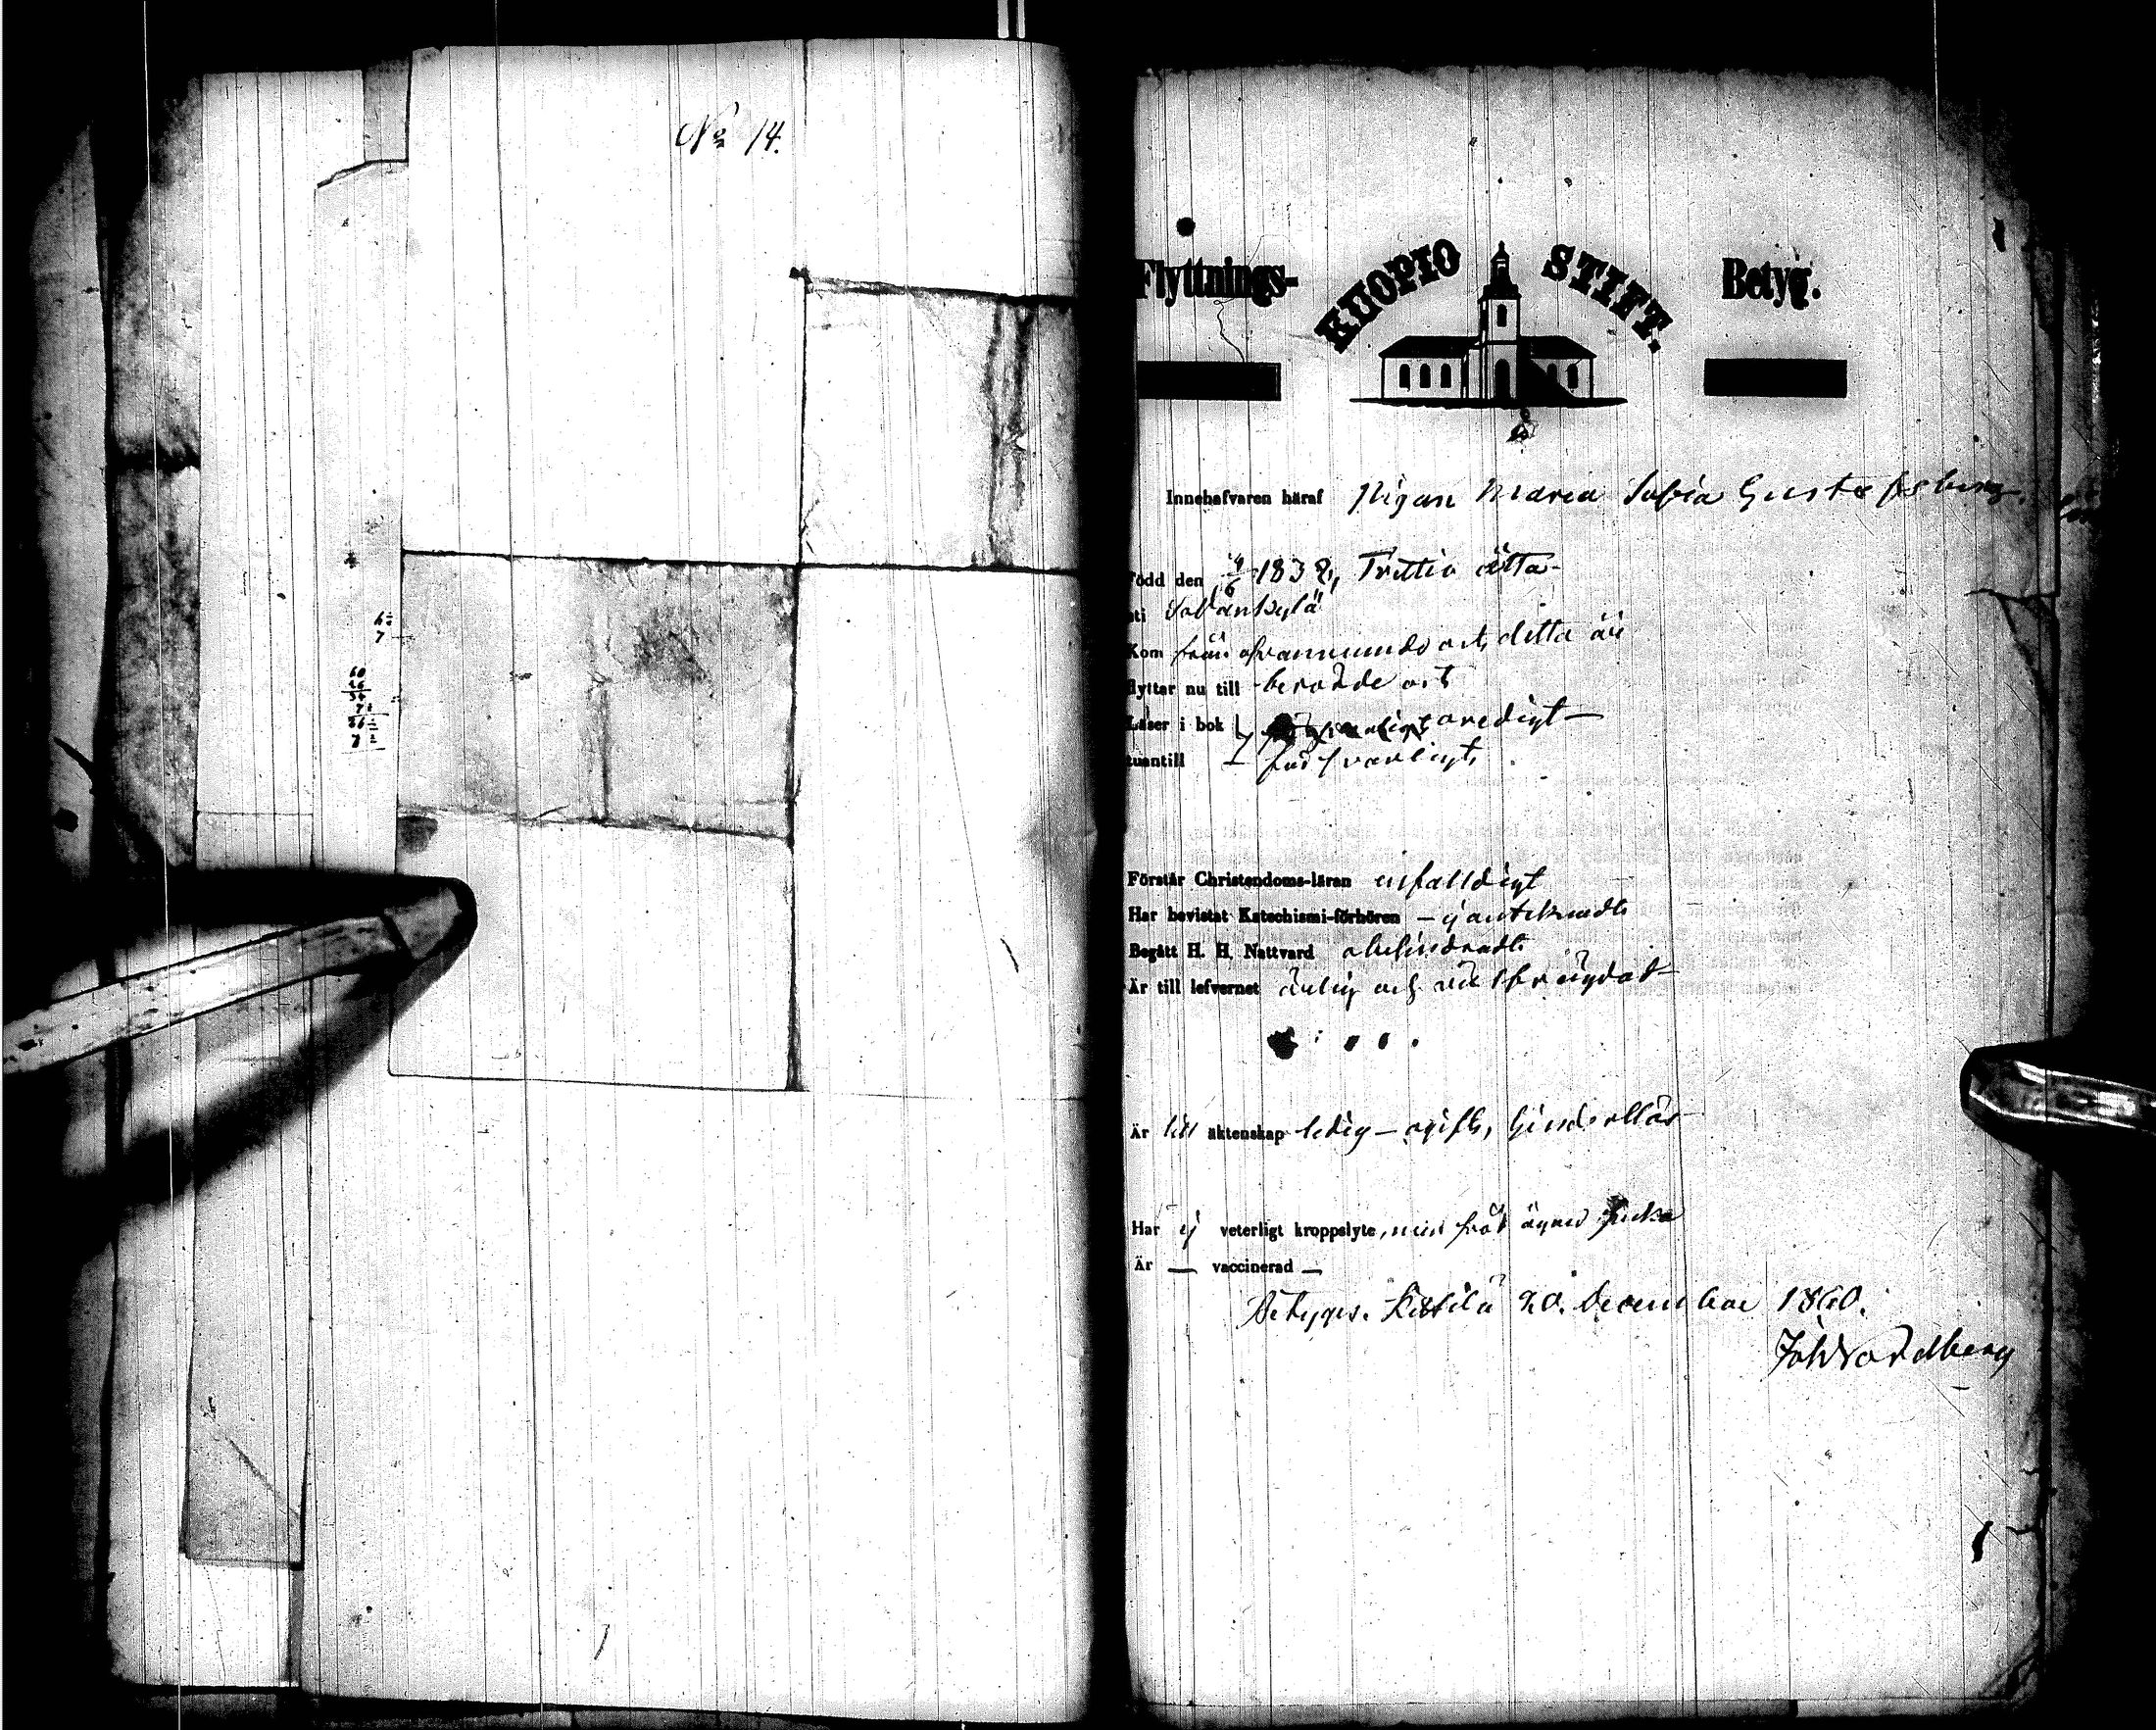 No 14.
6
7
60
26
34
7
Flyttnings- KUOPIO STIFT. Betyg.
Innehafvaren häraf Pigan Maria Sofia Gustafsberg.
Född den 4/6 1838, Trettio åtta
uti Sodankylä
Kom från ofvannämnde ort detta år
flyttar nu till berörde ort
Läser i bok oredigt
utantill försvarligt
Förstår Christendoms-läran enfalldigt
Har bevistat Katechismi-förhören – ej antecknadt
Begått H. H. Nattvard obehindradt
Är till lefvernet ärlig och väl
Är till äktenskap ledig – ogift,
Har ej veterligt kroppslyte, men
Är — vaccinerad —
Betygas. Kittilä 20. December 1860.
Joh Nordberg